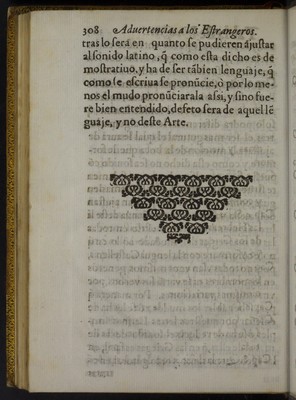 308 Aduertencias a los Estrangeros.
tras lo será en quanto se pudieren ajustar
al sonido latino, q̃ como esta dicho es de
mostratiuo, y ha de ser tãbien lenguaje, q̃
como se escriua se pronũcie, ò por lo me-
nos el mudo pronũciarala assi, y sino fue-
re bien entendido, defeto sera de aquel lẽ
guaje, y no deste Arte.